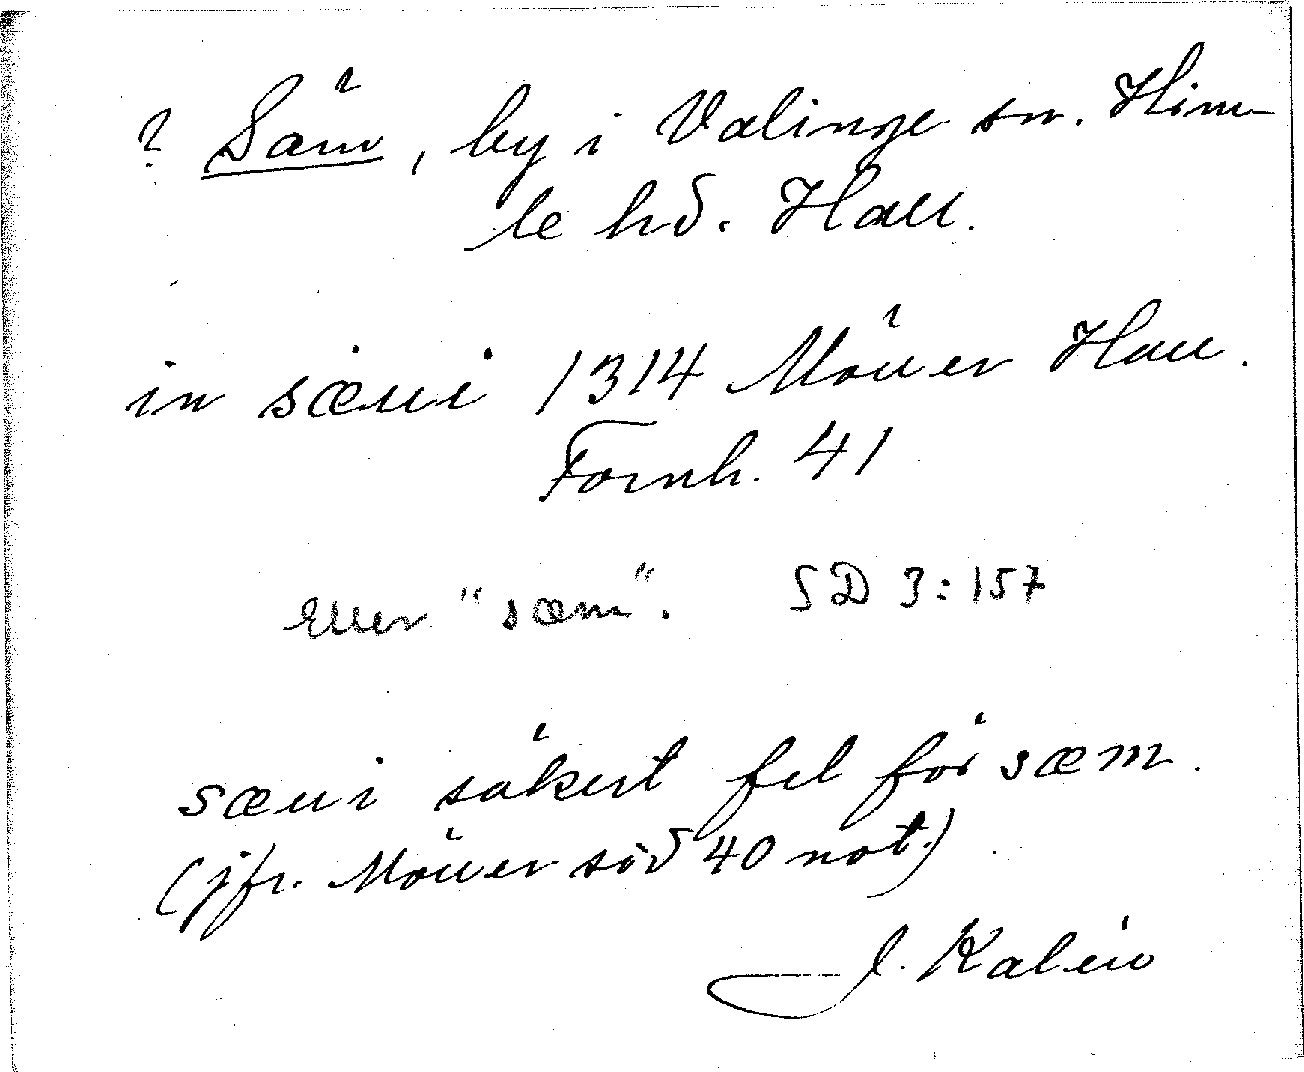 ? Säm, by i Valinge sn. Him-
le hd. Hall.
in sæmi 1314 Möller Hall.
Fornh. 41
Eller "sæm". SD 3:157
sæmi säkert fel för sæm.
(jfr. Möller sid 40 not.)
J. Kalén